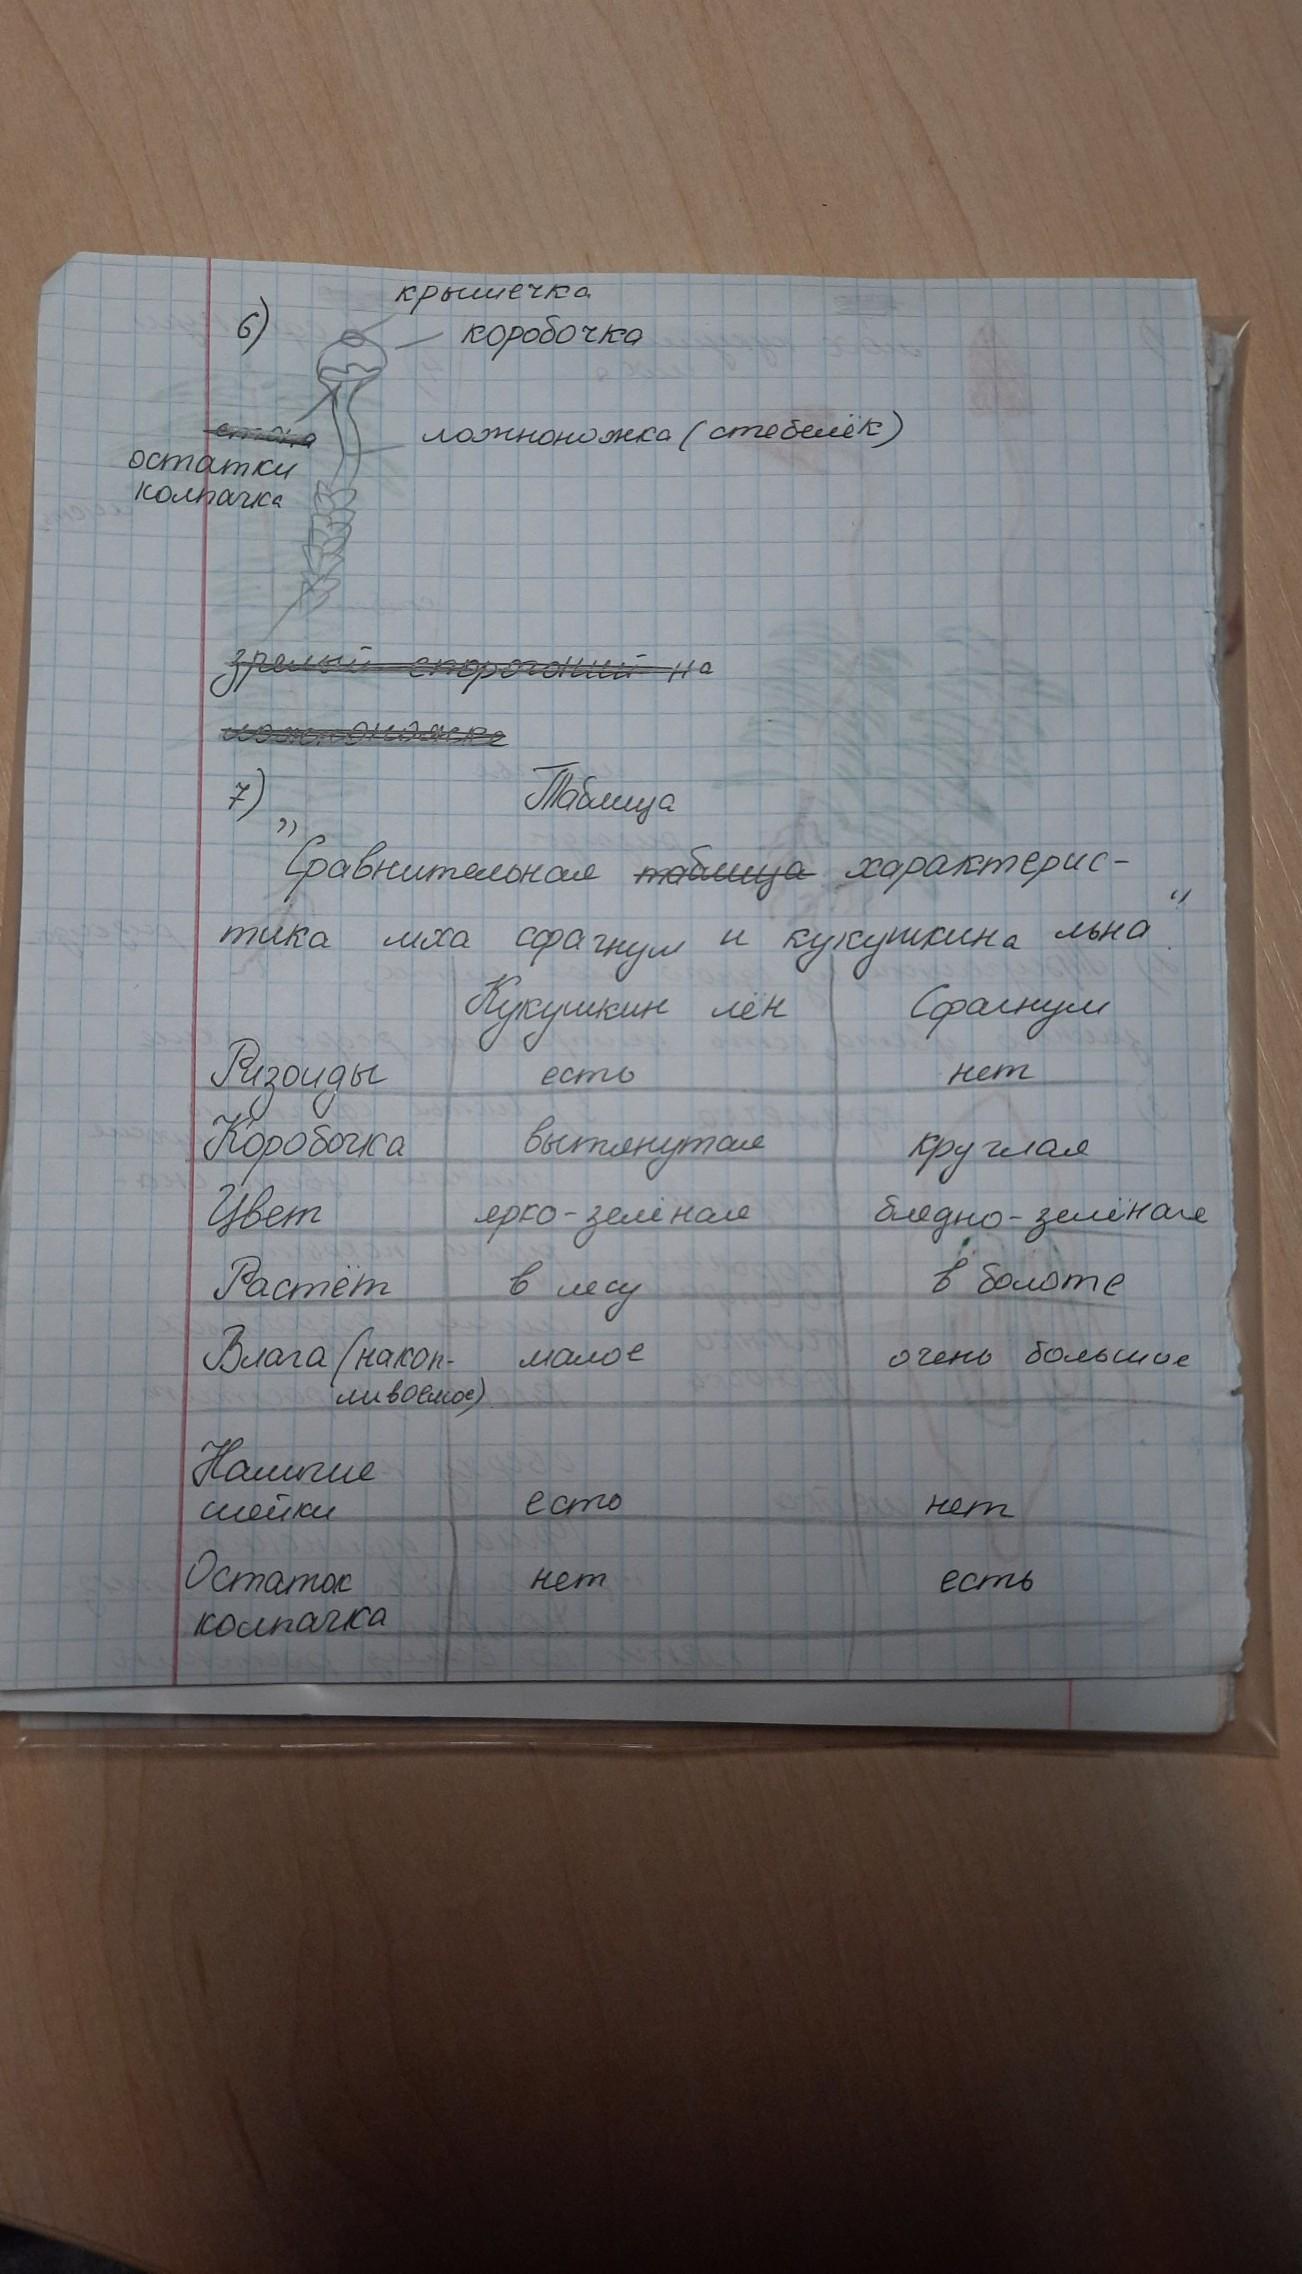 6)
крышечка
коробочка
стопа
ложноножка (стебелёк)
остатки
колпачка
зрелый спорогоний на
ложноножке
7) Таблица
„Сравнительная таблица характерис-
тика мха сфагнум и кукушкина льна".
Кукушкин лён Сфагнум
Ризоиды есть нет
Коробочка вытянутая круглая
Цвет ярко-зелёная бледно-зелёная
Растёт в лесу в болоте
Влага (накоп- малое очень большое
ливаемое)
Наличие
шейки есть нет
Остаток нет есть
колпачка